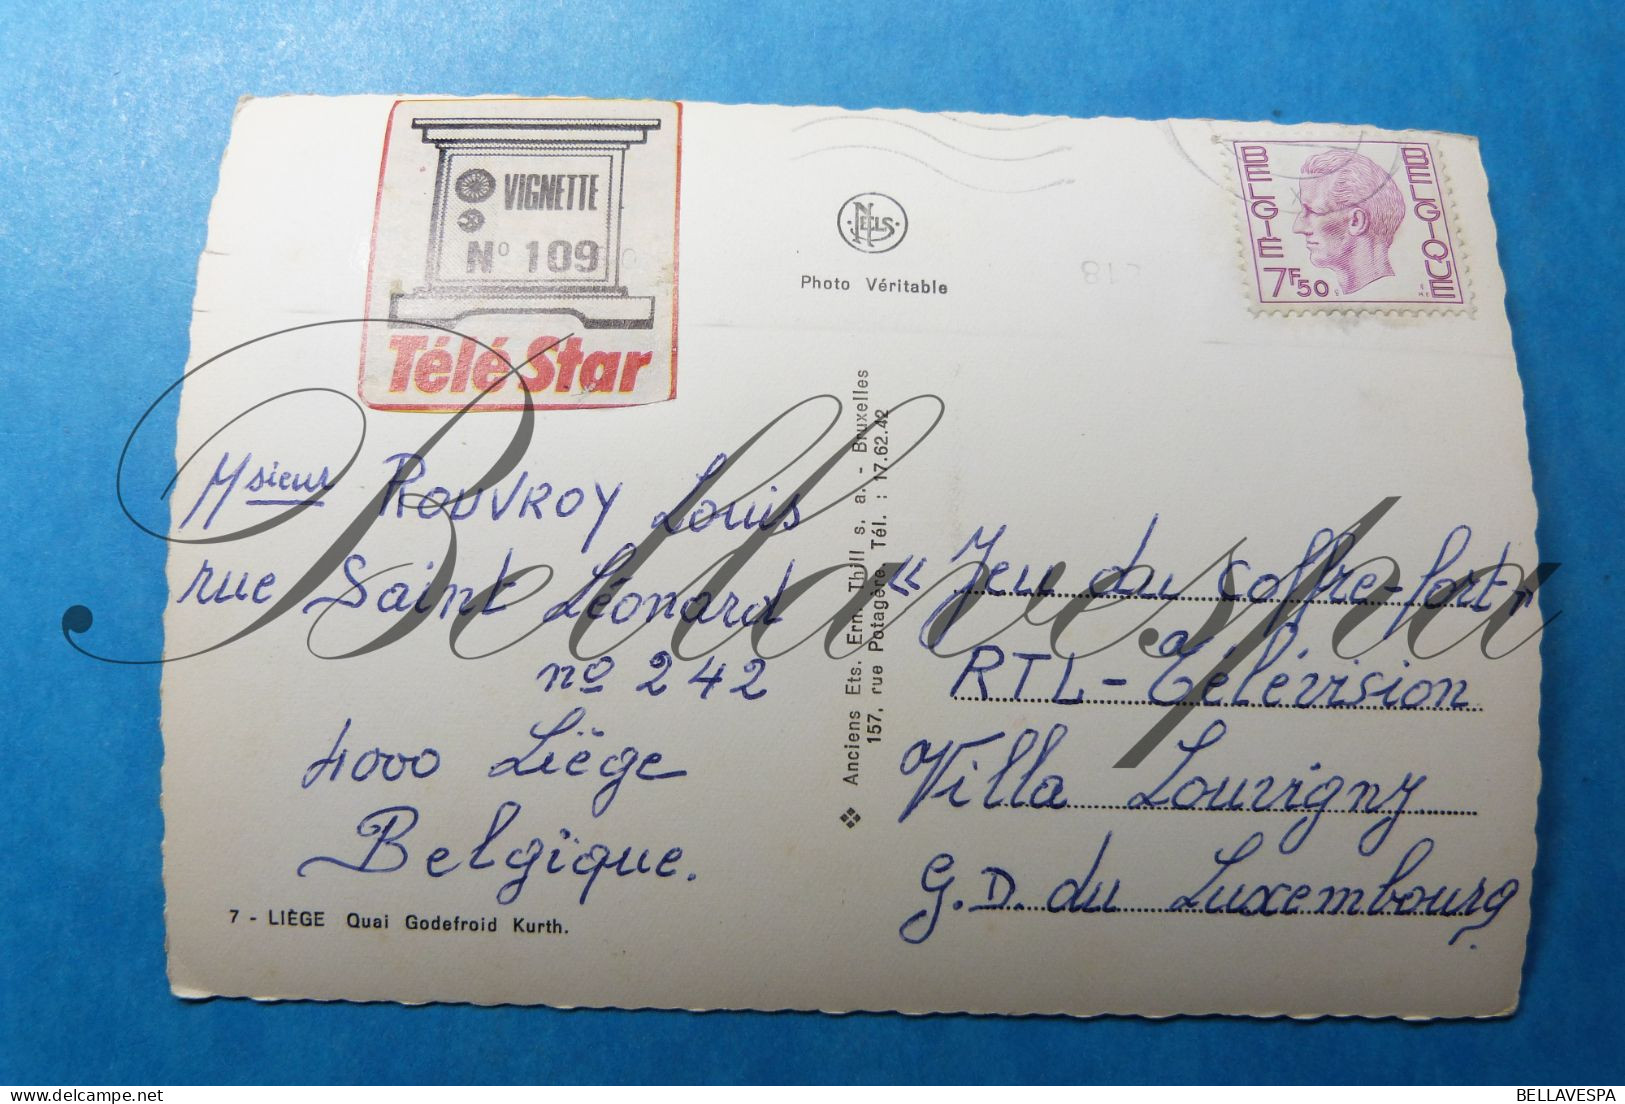 VIGNETTE
N° 109
Télé Star
NELS
Photo Véritable
BELGIË
BELGIQUE
7F50
Msieur ROUVROY Louis
rue Saint Léonard
no 242
4000 Liège
Belgique.
7 - LIÈGE Quai Godefroid Kurth.
Anciens Ets. Ern. Thill s. a. - Bruxelles
157, rue Potagère. Tél. : 17.62.42
« Jeu du coffre-fort »
RTL - Télévision
Villa Louvigny
G.D. du Luxembourg.
Bellavespa
BELLAVESPA